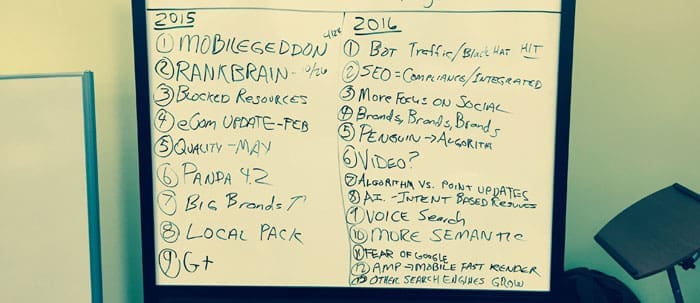 2015
① MOBILEGEDDON 4/22
② RANKBRAIN - 10/26
③ BLOCKED RESOURCES
④ eCom UPDATE-FEB
⑤ QUALITY -MAY
⑥ PANDA 4.2
⑦ BIG BRANDS ↑
⑧ LOCAL PACK
⑨ G+
2016
① BOT TRAFFIC/BLACK HAT HIT
② SEO = COMPLIANCE/INTEGRATED
③ MORE FOCUS ON SOCIAL
④ Brands, Brands, Brands
⑤ PENGUIN → ALGORITHM
⑥ VIDEO?
⑦ ALGORITHM VS. POINT UPDATES
⑧ A.I. - INTENT BASED RESULTS
⑨ VOICE SEARCH
⑩ MORE SEMANTIC
⑪ FEAR OF GOOGLE
⑫ AMP → MOBILE FAST RENDER
⑬ OTHER SEARCH ENGINES GROW